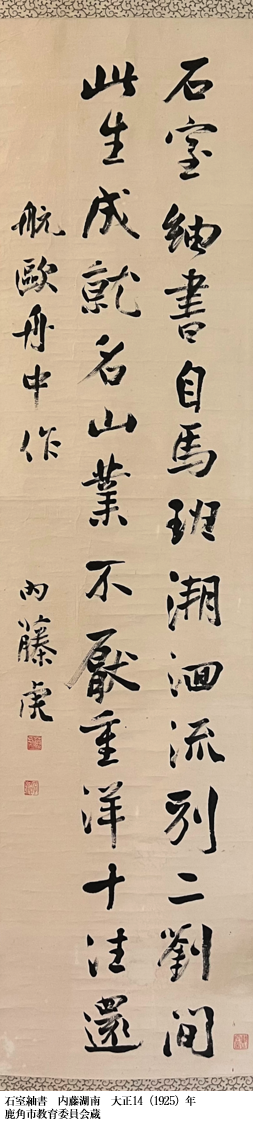 石室紬書自馬班溯洄流別二劉間
此生成就名山業不厭重洋十往還
航歐舟中作
内藤虎
石室紬書　内藤湖南　大正14（1925）年
鹿角市教育委員会蔵